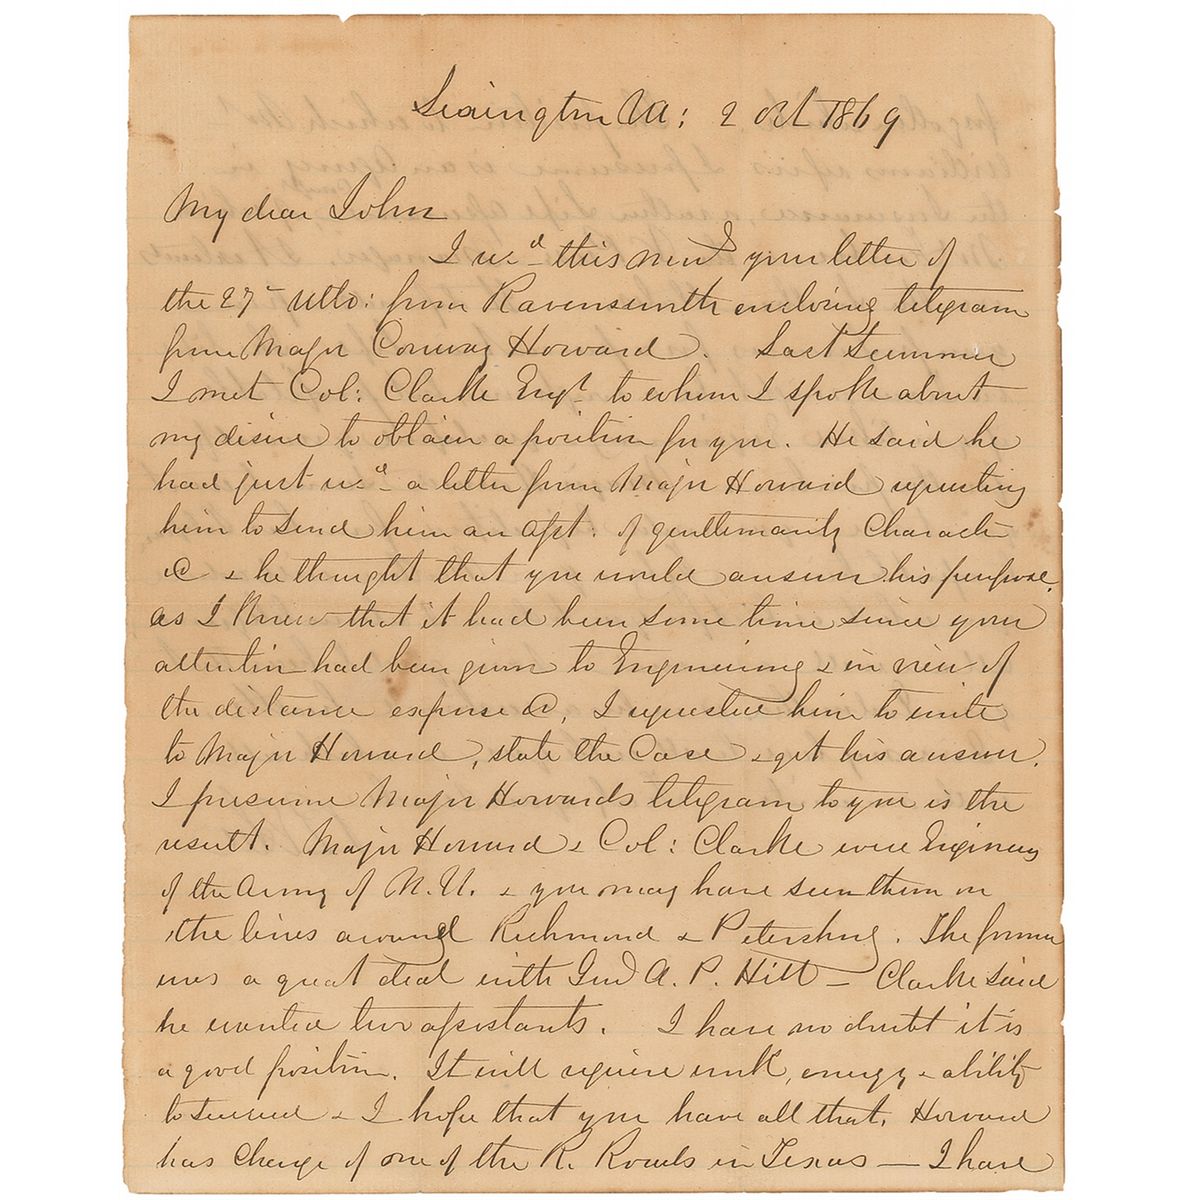 Lexington Va: 2 Oct 1869
My dear John
I recd this mor'g your letter of
the 27th Ulto: from Ravensworth enclosing telegram
from Major Conway Howard. Last Summer
I met Col: Clarke Engr to whom I spoke about
my desire to obtain a position for you. He said he
had just recd a letter from Major Howard requesting
him to send him an asst: of gentlemanly Character
&C & he thought that you would answer his purpose.
as I knew that it had been some time since your
attention had been given to Engineering & in view of
the distance expense &C, I requested him to write
to Major Howard, state the Case & get his answer.
I presume Major Howards telegram to you is the
result. Major Howard & Col: Clarke were Engineers
of the Army of N. V. & you may have seen them on
the lines around Richmond & Petersburg. The former
was a great deal with Genl A. P. Hill — Clarke said
he wanted two assistants. I have no doubt it is
a good position. It will require work, energy & ability
to succeed & I hope that you have all that. Howard
has Charge of one of the R. Roads in Texas — I have